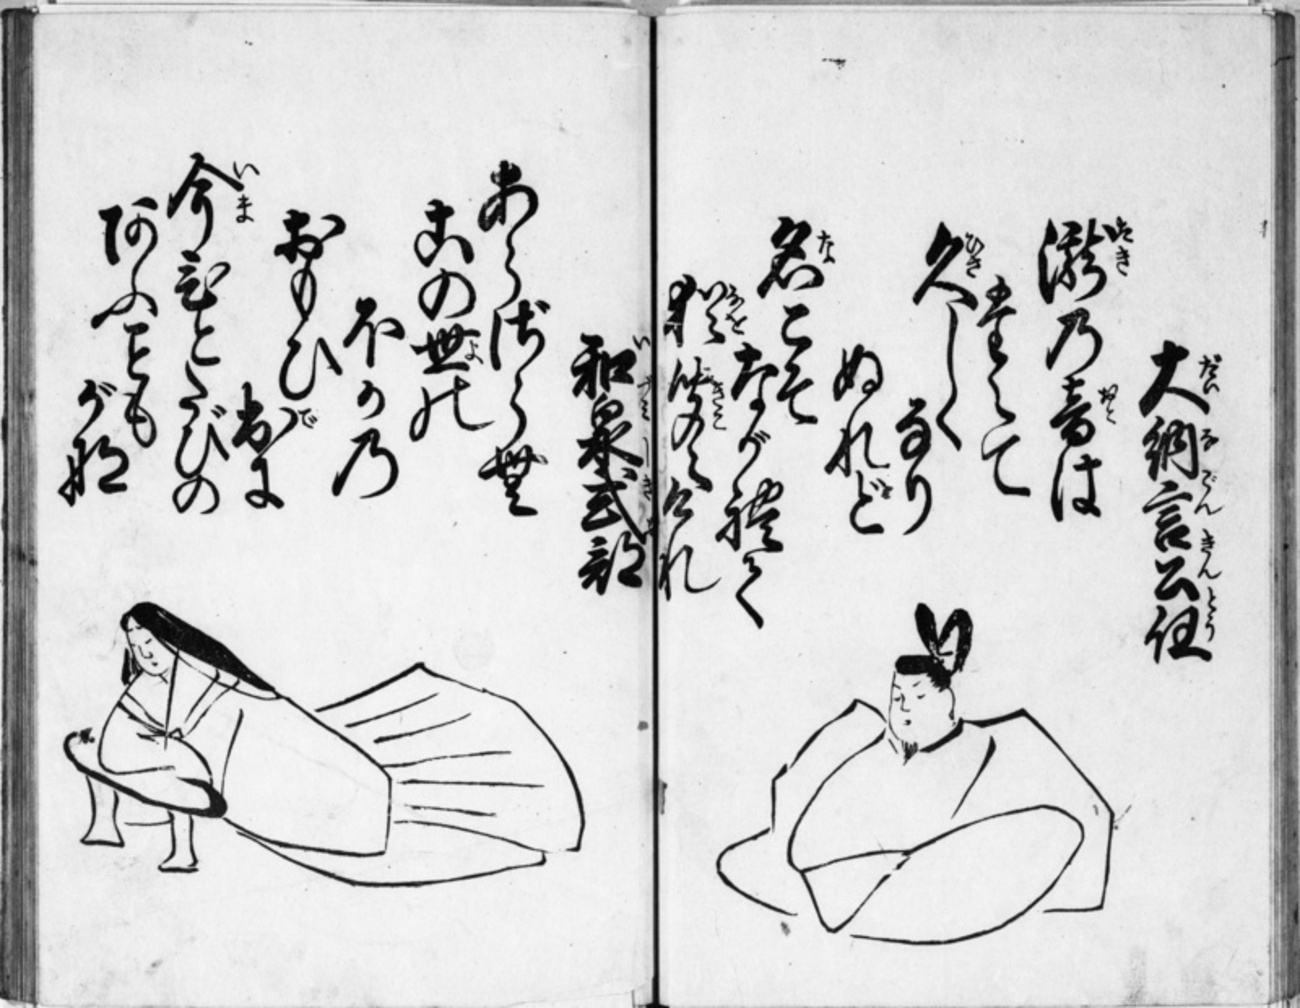 大納言公任
滝乃音は
たえて
久しく
なり
ぬれど
名こそ
ながれて
猶聞えけれ
和泉式部
あらざらむ
この世の
ほかの
おもひ
出に
今ひとたびの
あふことも
がな